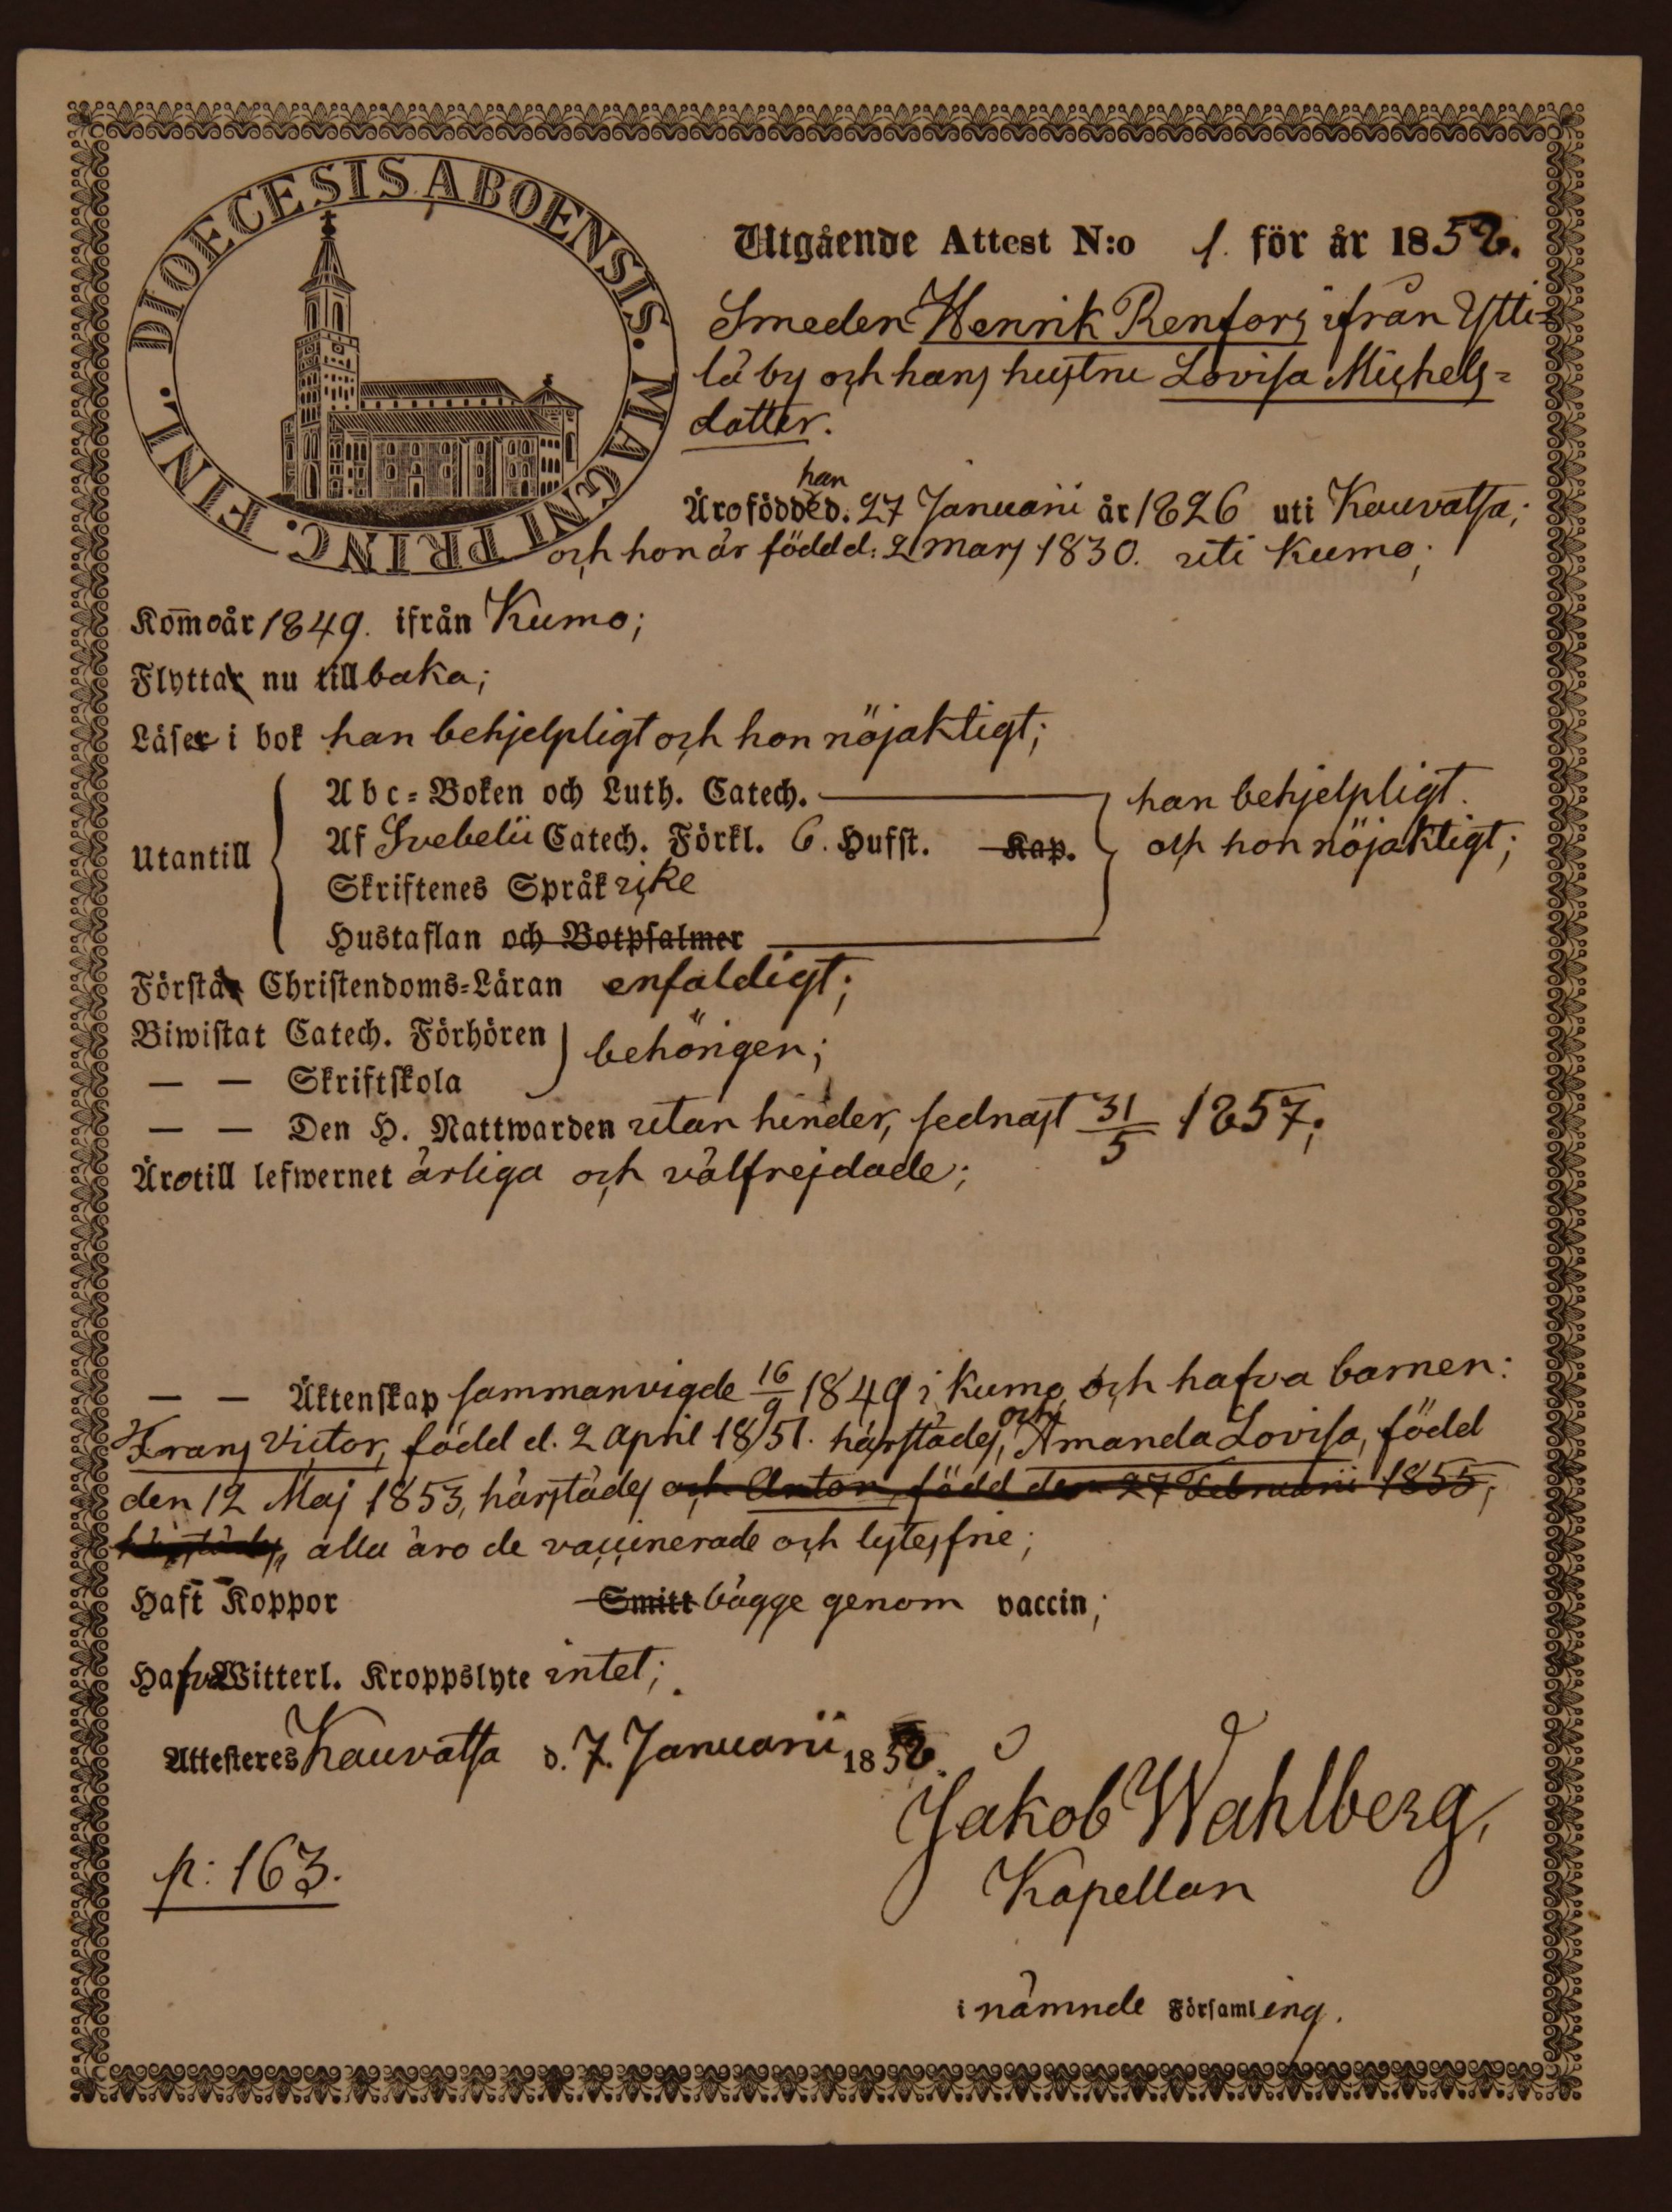 DIOECESIS ABOENSIS. MAGNI PRINC. FINL.
Utgående Attest N:o 1. för år 1858.
Smeden Henrik Renfors ifrån Ytti=
lä by och hans hustru Lovisa Michels=
dotter.
han
Äro född d. 27 Januarii år 1826 uti Kauvatsa;
och hon är född d: 2 Mars 1830. uti Kumo;
Kom̄o år 1849. ifrån Kumo;
Flytta nu tillbaka;
Läse i bok han behjelpligt och hon nöjaktigt;
Utantill
Abc=Boken och Luth. Catech.
Af Svebelii Catech. Förkl. 6. Hufst. Kap.
Skriftenes Språk icke
Hustaflan och Botpsalmer
han behjelpligt.
och hon nöjaktigt;
Förstå Christendoms=Läran enfaldigt;
Biwistat Catech. Förhören
— — Skriftskola
behörigen;
— — Den H. Nattwarden utan hinder, sednast 31/5 1857;
Äro till lefwernet ärliga och välfrejdade;
— — Äktenskap sammanvigde 16/9 1849 i Kumo, och hafva barnen:
Frans Victor, född d. 2 April 1851. härstädes, och Amanda Lovisa, född
den 12 Maj 1853, härstädes och Anton, född den 27 Februarii 1855,
härstädes, alla äro de vaccinerade och lytesfrie;
Haft Koppor Smitt bägge genom vaccin;
Hafva Witterl. Kroppslyte intet;
Attesteres Kauvatsa d. 7. Januarii 1858.
Jakob Wahlberg,
Kapellan
p: 163.
i nämnde Församling.